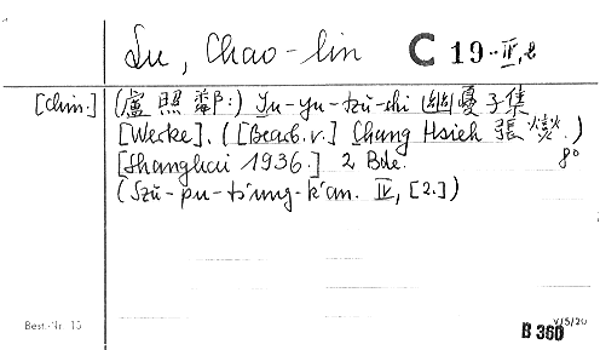 Lu, Chao-lin C 19-IV,2
[chin.] (盧照鄰:) Yu-yu-tzŭ-chi 幽憂子集
[Werke]. ([Bearb. v.] Chang Hsieh 張燮.)
[Shanghai 1936.] 2 Bde. 8°
(Szŭ-pu-ts'ung-k'an. IV, [2.])
Best.-Nr. 13 B 360